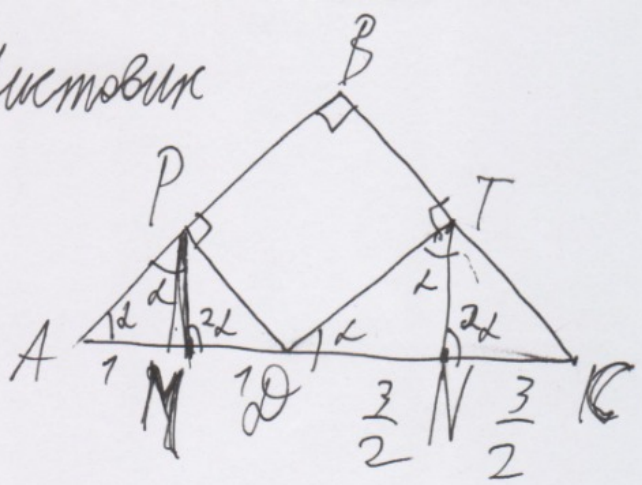 Чистовик
B
P
T
α
α
2α
α
α
2α
A
1
M
1
D
3/2
N
3/2
C